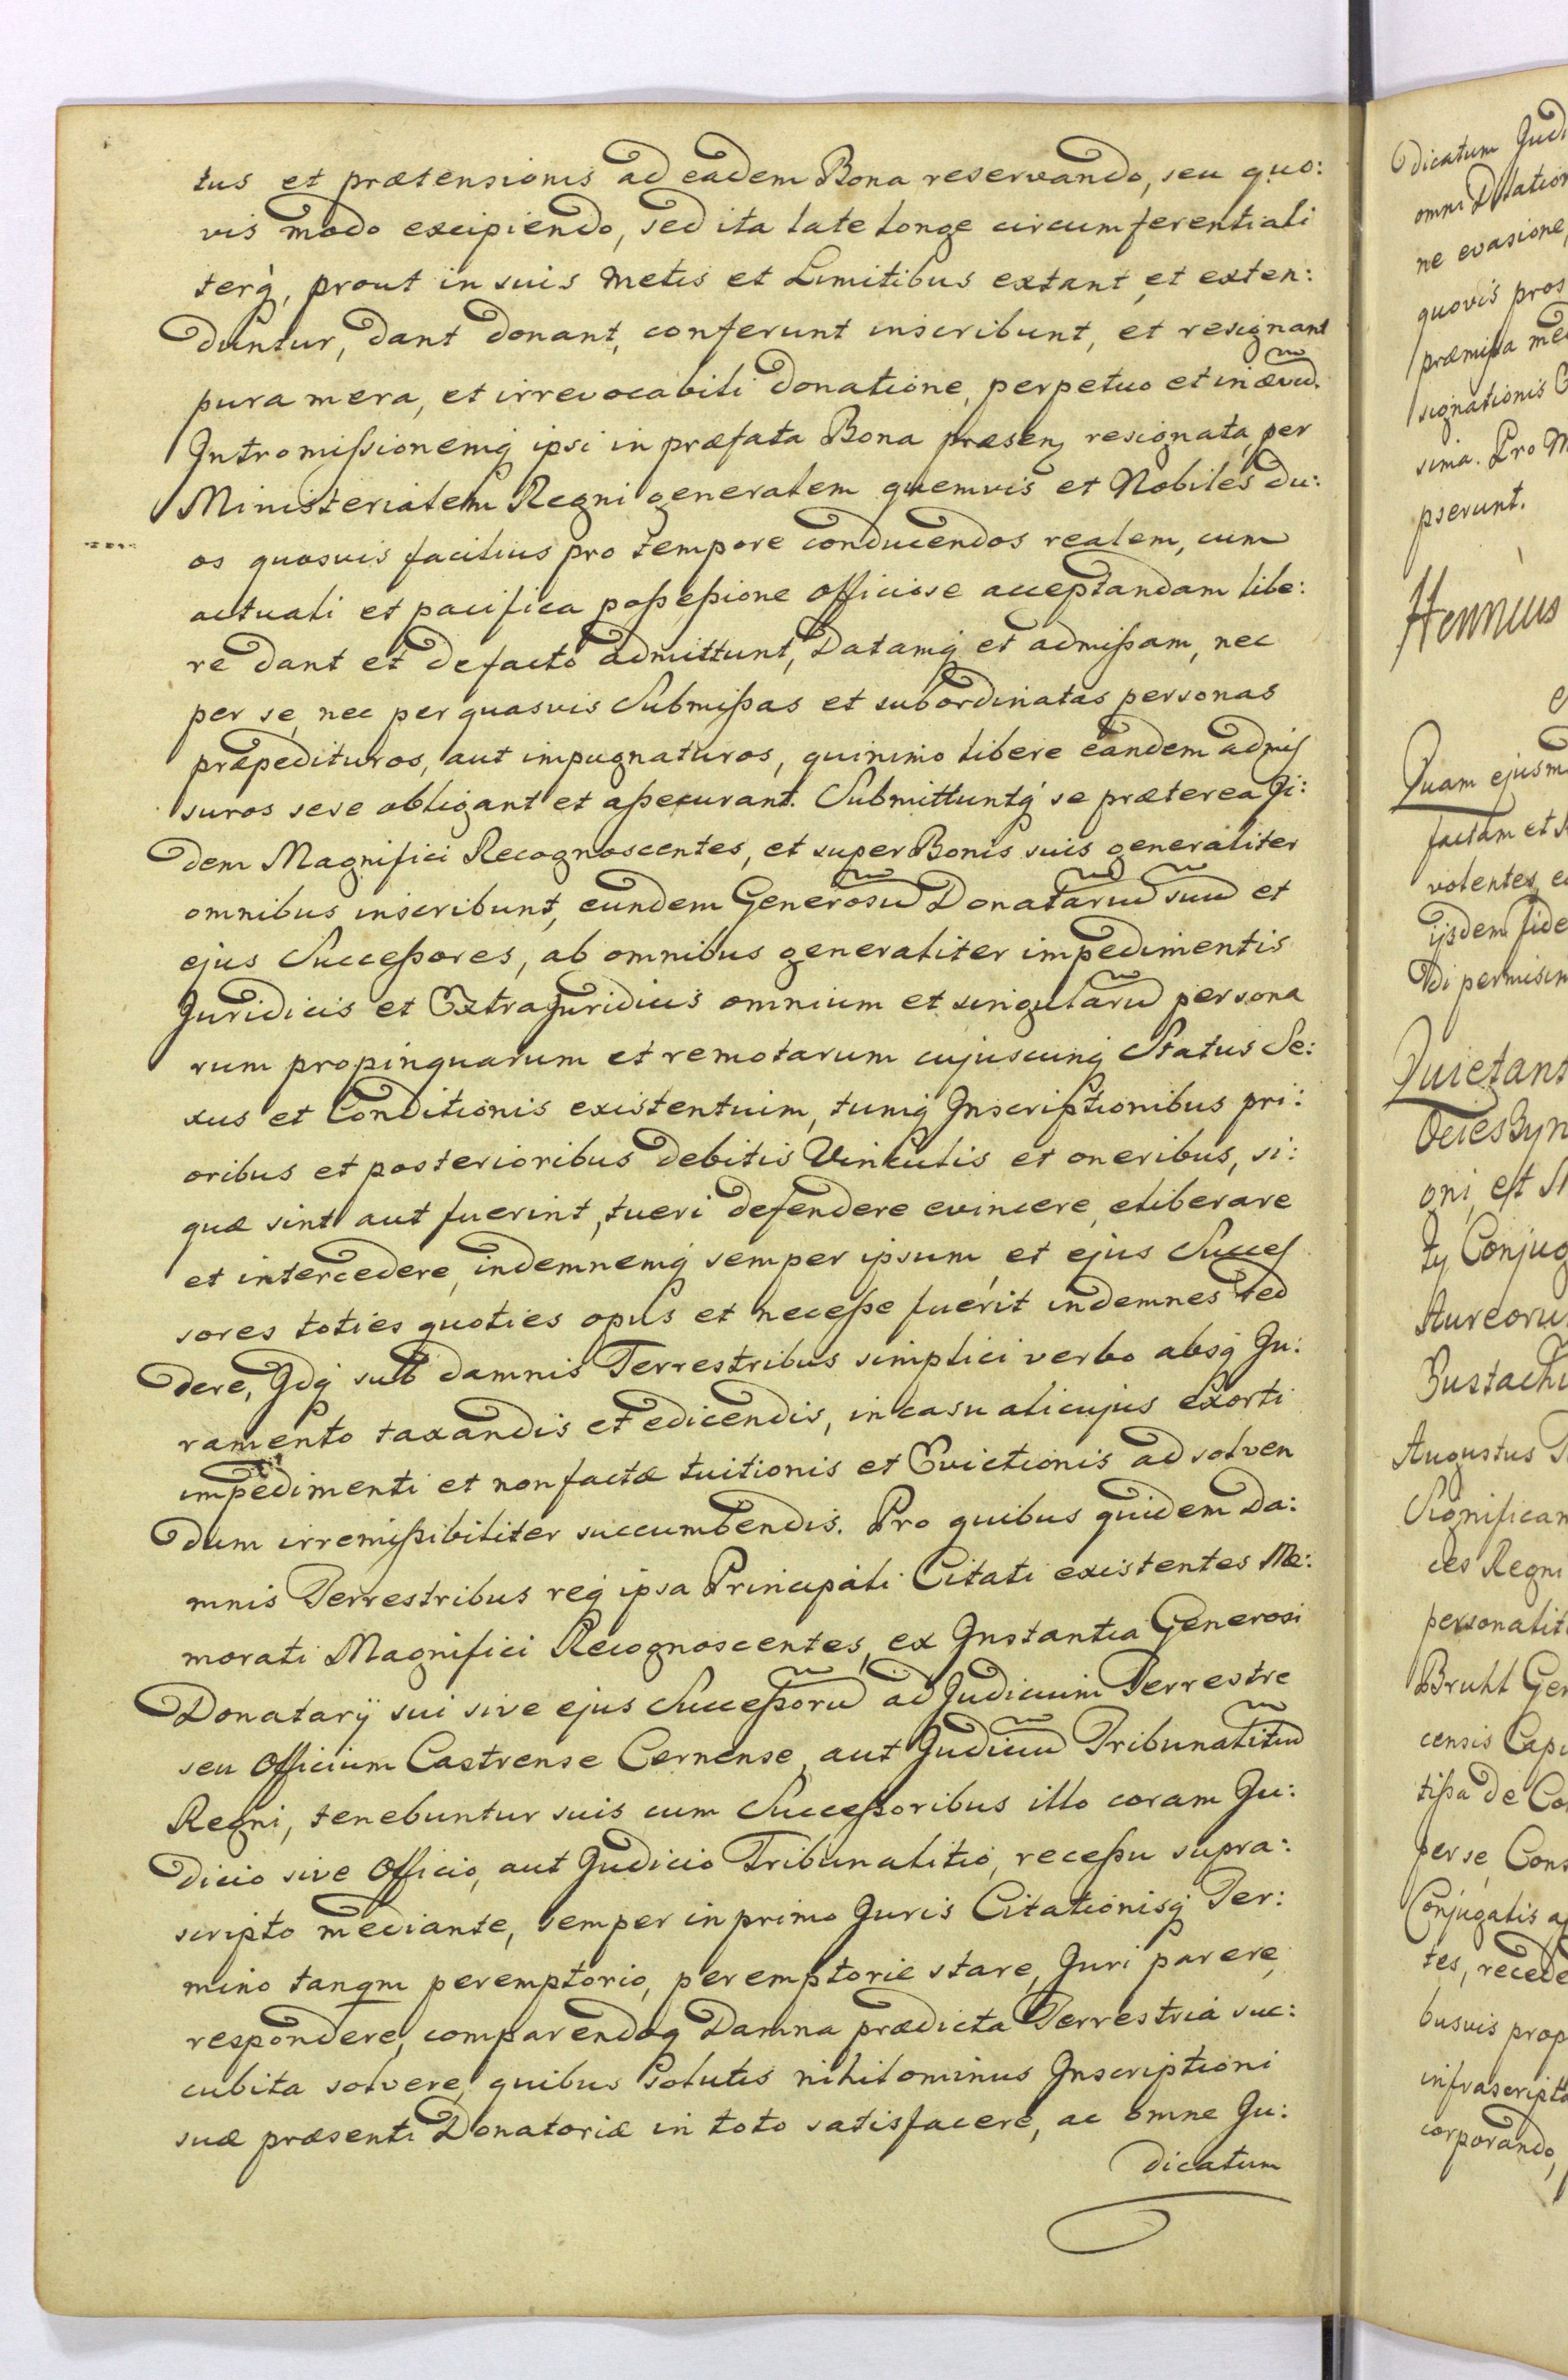 tus et prætensionis ad eadem Bona reservando, seu quo:
vis modo excipiendo, sed ita late longe circumferentiali
terq́, prout in suis Metis et Limitibus extant, et exten:
duntur, dant donant, conferunt inscribunt, et resignant
pura mera, et irrevocabili donatione, perpetuo et in ævũ.
Intromißionemq́ ipsi in præfata Bona præsenz resignata, per
Ministerialem Regni generalem quemvis et Nobiles du:
os quosvis facilius pro tempore conducendos realem, cum
actuali et pacifica poßeßione officiose acceptandam libe:
re dant et de facto admittunt, Datamq́ et admißam, nec
per se, nec per quasvis Submißas et subordinatas personas
præpedituros, aut impugnaturos, quinimo libere eandem admis
suros sese obligant et aßecurant. Submittuntq́ se præterea Ji:
dem Magnifici Recognoscentes, et super Bonis suis generaliter
omnibus inscribunt, eundem Generosũ Donatariũ suũ et
ejus Succeßores, ab omnibus generaliter impedimentis
Juridicis et ExtraJuridicis omnium et singulariũ persona
rum propinquarum et remotarum cujuscunq́ Status Se:
xus et Conditionis existentium, tumq́ Inscriptionibus pri:
oribus et posterioribus debitis Vinculis et oneribus, si:
quæ sint aut fuerint, tueri defendere evincere, eliberare
et intercedere, indemnemq́ semper ipsum, et ejus Succes
sores toties quoties opus et neceße fuerit indemnes red
dere, Idq́ sub damnis Terrestribus simplici verbo absq́ Ju:
ramento taxandis et edicendis, in casu alicujus exorti
impedimenti et non factæ tuitionis et Evictionis ad solven
dum irremißibiliter succumbendis. Pro quibus quidem Da:
mnis Terrestribus req́ ipsa Principali Citati existentes Me:
morati Magnifici Recognoscentes, ex Instantia Generosi
Donatarÿ sui sive ejus Succeßorũ ad Judicium Terrestre
seu Officium Castrense Cernense, aut Judiciũ Tribunalitiũ
Regni, tenebuntur suis cum Succeßoribus illo coram Ju:
dicio sive Officio, aut Judicio Tribunalitio, receßu supra:
scripto mediante, semper in primo Juris Citationisq́ Ter:
mino tanqm peremptorio, peremptorie stare, Juri parere,
respondere, comparendoq́ Damna prædicta Terrestria suc:
cubita solvere, quibus solutis nihilominus Inscriptioni
suæ præsenti Donatoriæ in toto satisfacere, ac omne Ju:
dicatum
dicatum Judi
omni Dilation
ne evasione,
quovis pros
præmißa me
signationis
sima. Pro M
pserunt.
Quam ejusm
factam et
volentes, e
ijsdem fide
di permisim
Quietant
oni, est
Conjug
Aureoru
Eustachi
Augustus
Significam
ces Regni
personalit
Bruhl Gen
censis Capi
tißa de Co
per se, Cons
Conjugatis a
tes, recede
busvis prop
infrascripto
corporando,